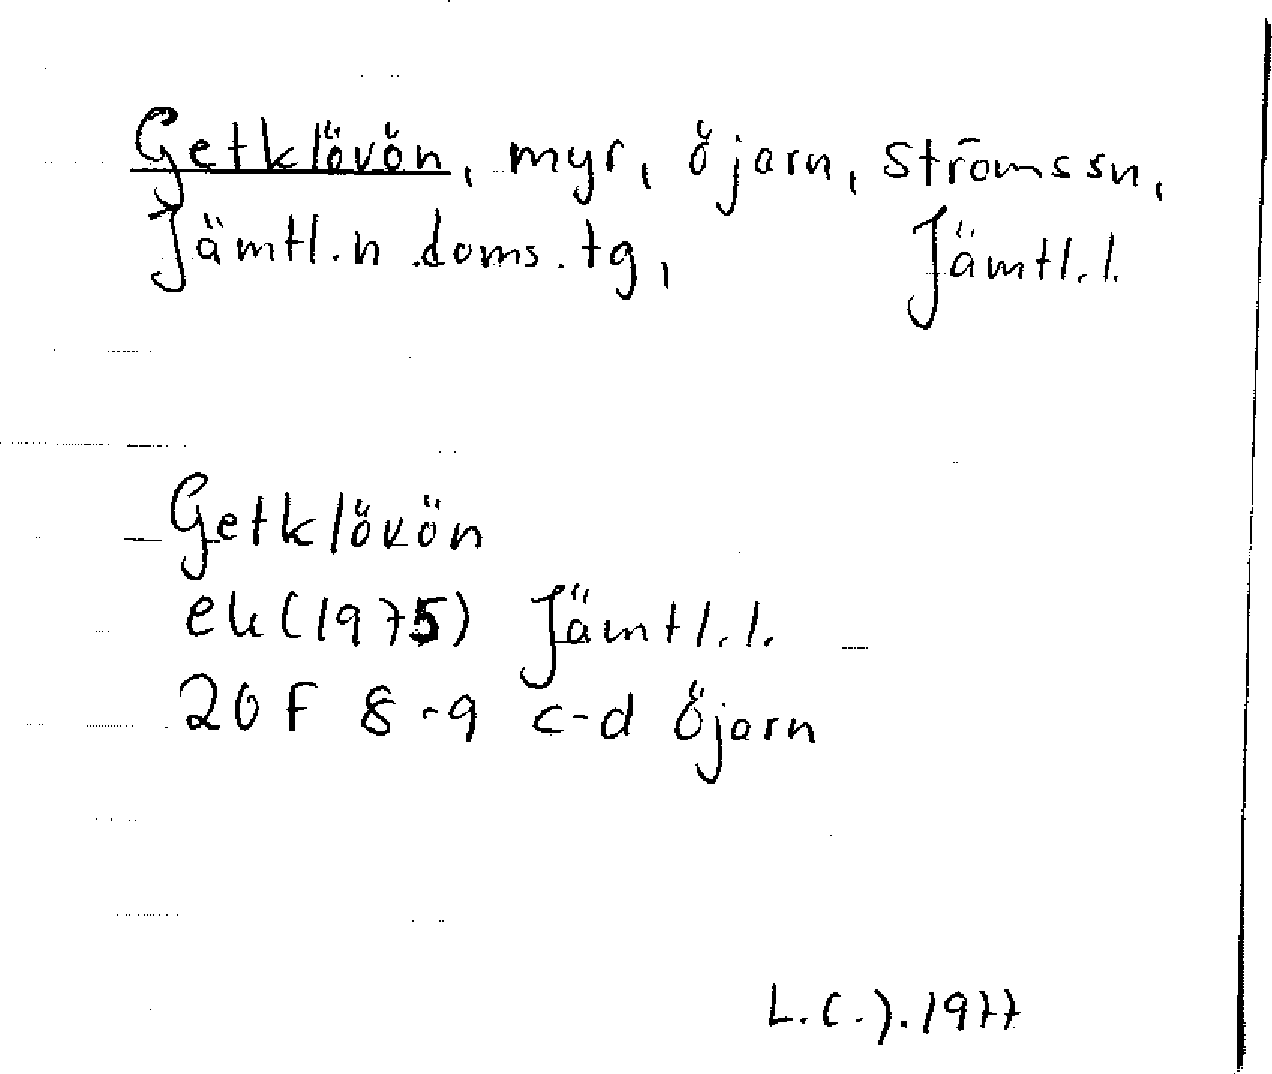 Getklövön, myr, öjarn, Ströms sn,
Jämtl. n doms. tg, Jämtl. l.
Getklövön
ek (1975) Jämtl. l.
20 F 8-9 c-d Öjarn
L.C.J. 1977